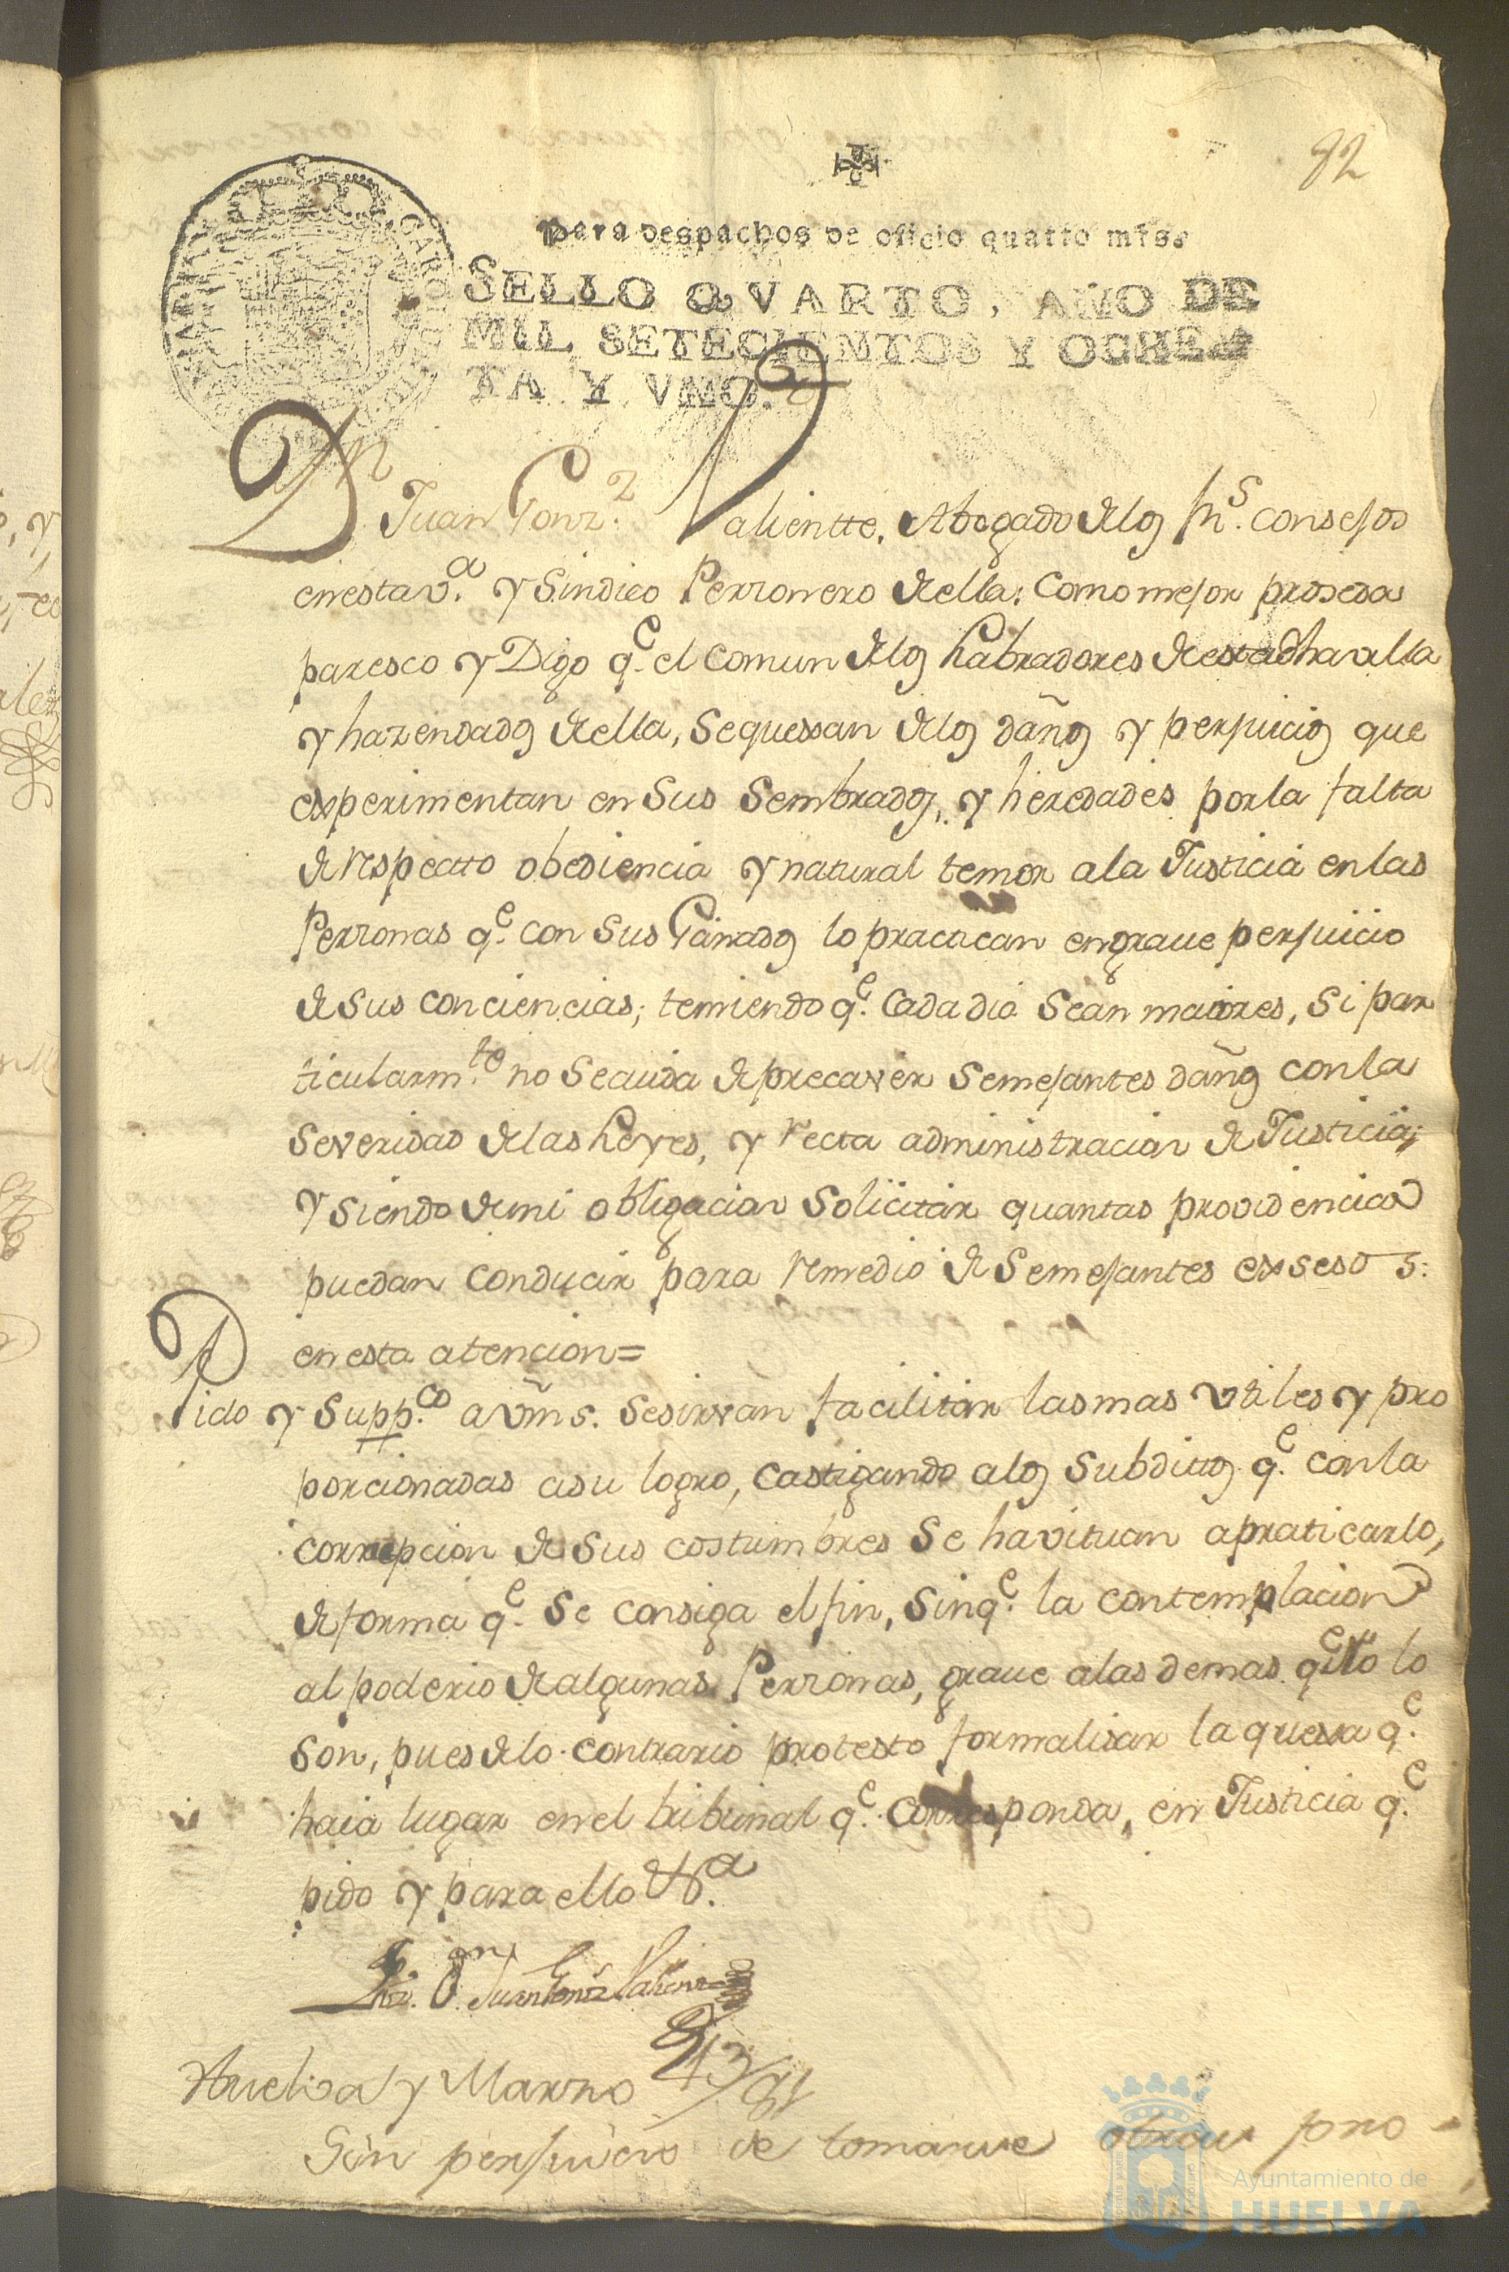 82
Para despachos de oficio quatro mrs.
SELLO QVARTO, AÑO DE
MIL SETECIENTOS Y OCHEN
TA Y VNO.
Dn Juan Gonz.z Valientte, Abogado delos Rs. consejos
enesta v.a y Sindico Perzonero della: Como mejor proseda
paresco y Digo q.e el comun delos Labradores de estadha villa
y hazendados della, Sequexan delos daños y perjuicios que
experimentan en Sus Sembrados, y heredades porla falta
de respectto obediencia y natural temor ala Justicia enlas
Perzonas q.e con Sus Ganados lo practican engraue perjuicio
de Sus conciencias; temiendo q.e Cada dia Sean maiores, Si par
ticularm.te no Secuida de precaver Semejantes daños conla
Severidad delas Leyes, y recta administracion de Justicia;
y Siendo demi obligacion Solicitar quantas providencias
puedan conducir para remedio de Semejantes exsesos:
enesta atencion=
Pido y Supp.co a Vms. Sesirvan facilitar lasmas vtiles y pro
porcionadas asu logro, castigando alos Subdittos q.e conla
corrupcion de Sus costumbres Se havituan apraticarlo,
de forma q.e Se consiga el fin, Sinq.e la contemplacion
al poderio de algunas Perzonas, graue alas demas qe No lo
Son, pues delo contrario protesto formalisar la quexa q.e
haia lugar en el tribunal q.e corresponda, en Justicia q.e
pido y para ello &.a
Liz. Dn. Juan Gonz Valiente
Huelva y Marzo 13/81
Sin perjuicio de tomarse otras pro-
Ayuntamiento de
HUELVA